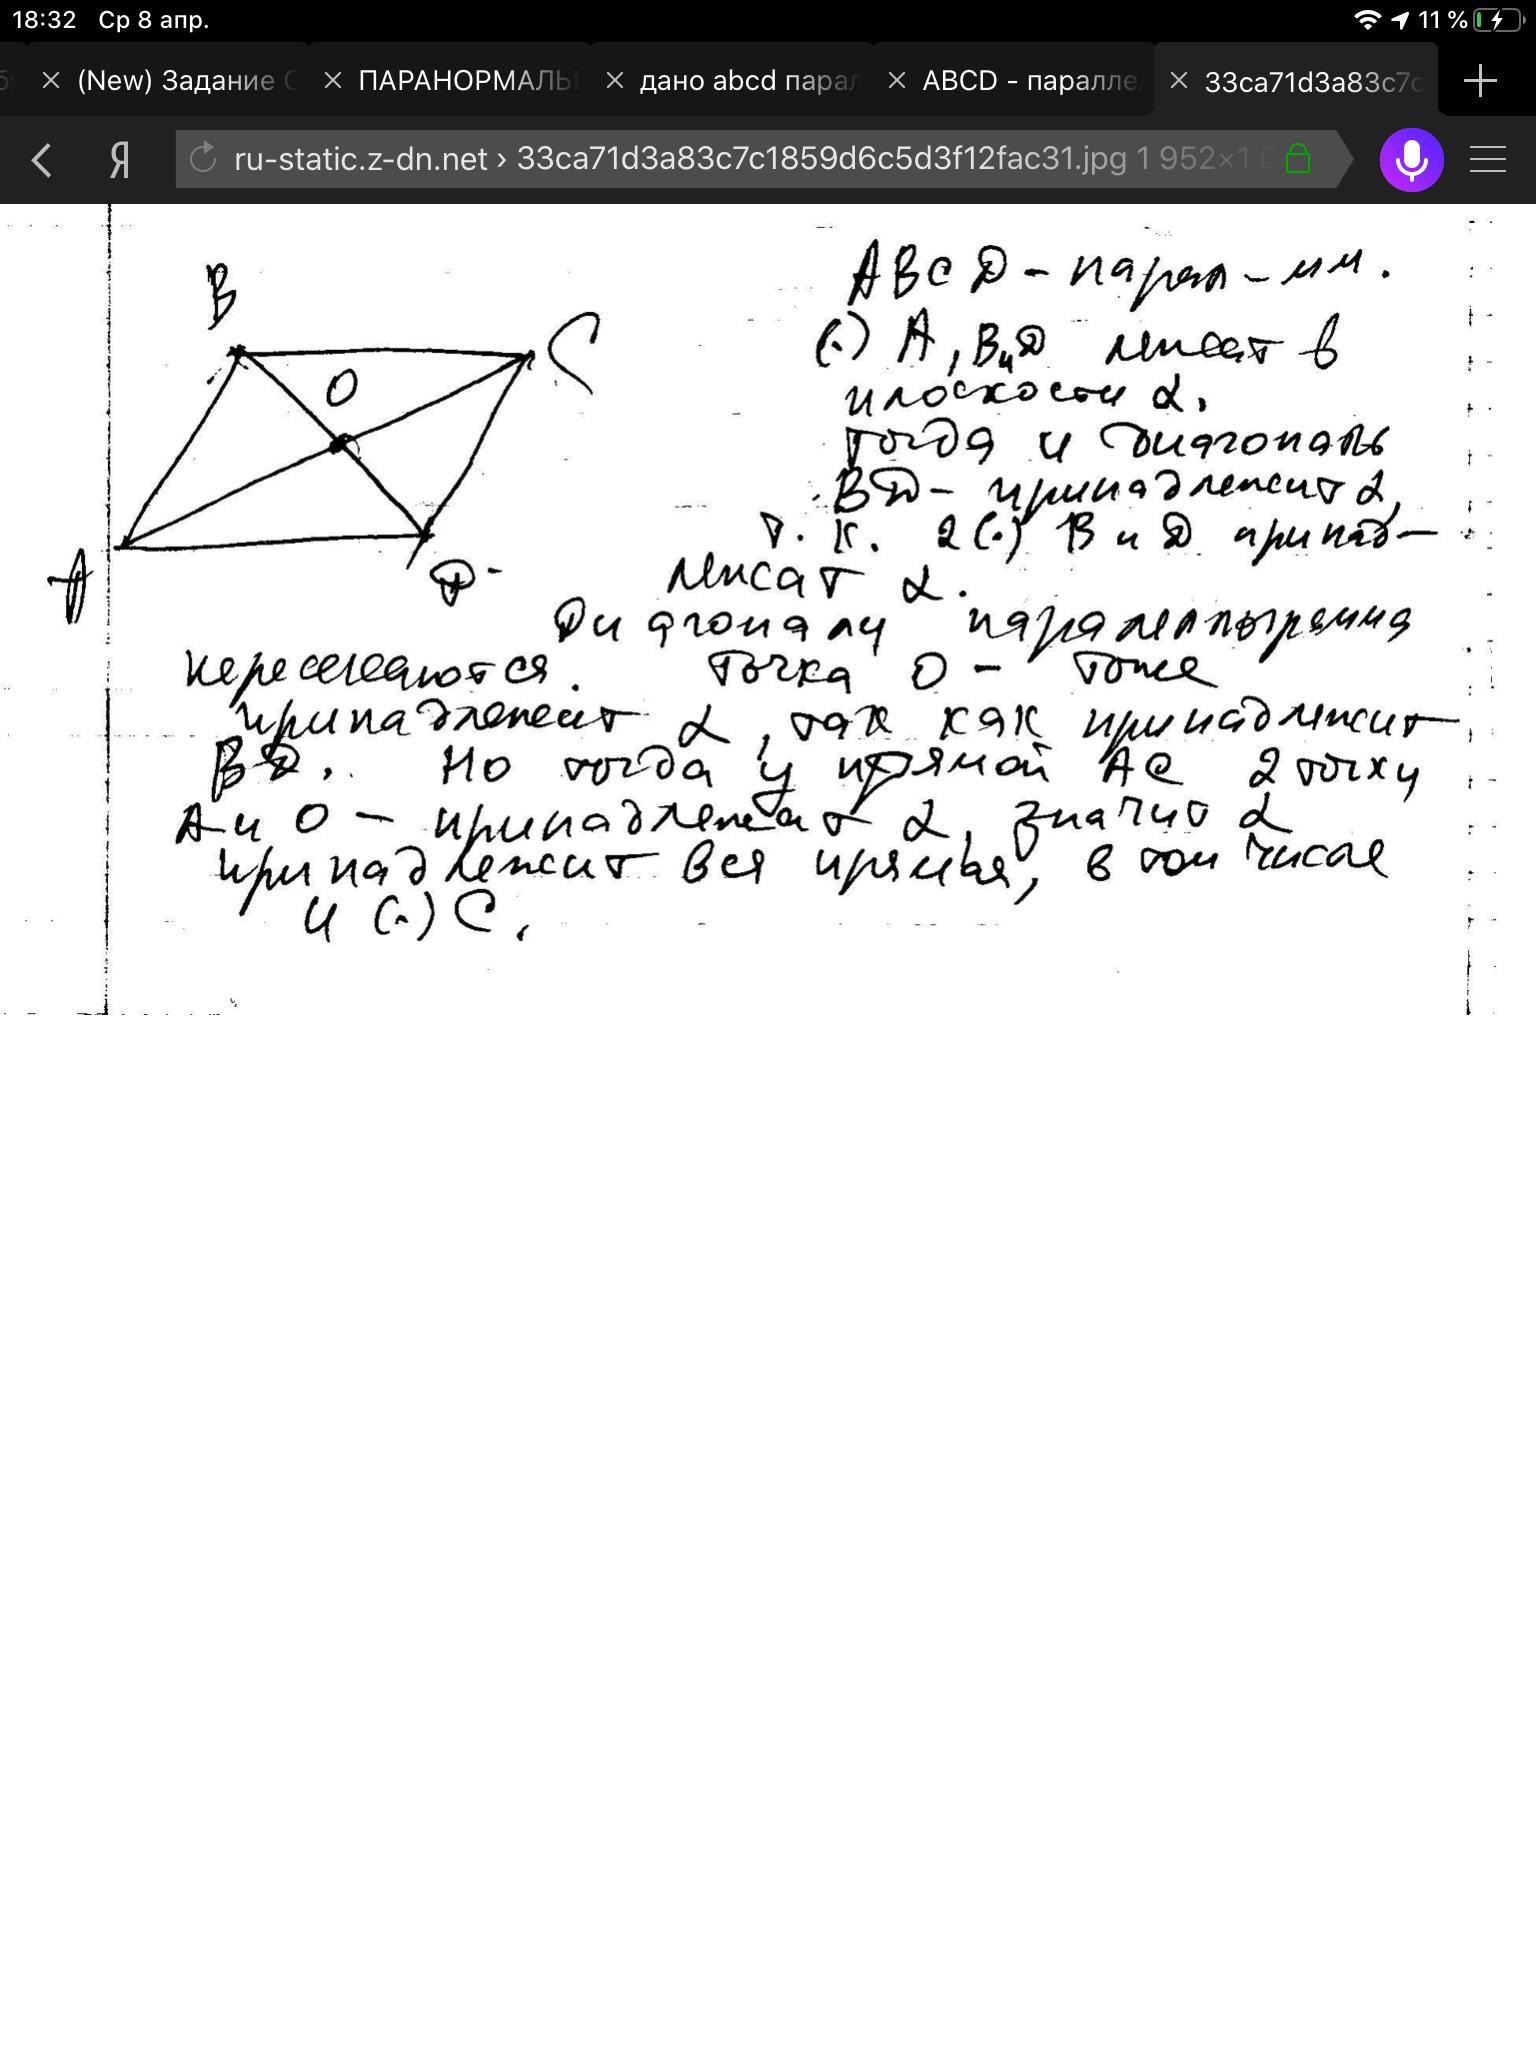 18:32 Ср 8 апр.
11 %
(New) Задание
ПАРАНОРМАЛЬ
дано abcd парал
ABCD - паралле
33ca71d3a83c7c
Я
ru-static.z-dn.net › 33ca71d3a83c7c1859d6c5d3f12fac31.jpg 1 952×1 0
B
C
O
A
D
ABCD - парал-мм.
(.) A, B и D лежат в
плоскости α.
тогда и диагональ
BD - принадлежит α,
т. к. 2 (.) B и D принад-
лежат α.
Диагонали параллелограмма
пересекаются. Точка O - тоже
принадлежит α, так как принадлежит
BD. Но тогда у прямой AC 2 точки
A и O - принадлежат α, значит α
принадлежит вся прямая, в том числе
и (.) C.